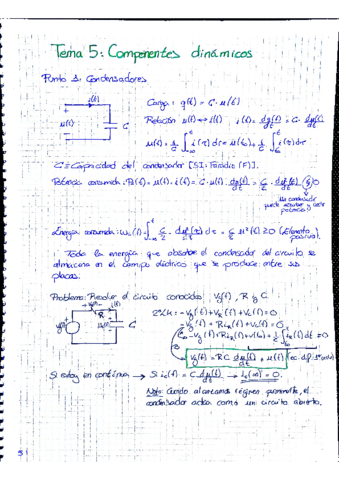 Tema 5: Componentes dinámicos
Punto 1: Condensadores
i(t)
u(t)
C
Carga: q(t) = C · u(t)
Relación u(t)↔i(t) i(t) = dq(t)/dt = C · du(t)/dt
u(t) = 1/C ∫ i(τ)dτ = u(t₀) + 1/C ∫ i(τ)dτ
C ≡ Capacidad del condensador [SI: Faradio (F)].
Potencia consumida: P(t) = u(t) · i(t) = C · u(t) · du(t)/dt = C/2 · du²(t)/dt ≶ 0
Un condensador puede absorber y ceder potencia
Energía consumida: W(t) = ∫ C/2 · du²(τ)/dτ dτ = C/2 u²(t) ≥ 0 (Elemento pasivo).
Toda la energía que absorbe el condensador del circuito se
almacena en el campo eléctrico que se produce entre sus
placas.
Problema: Resolver el circuito conocidos: Vg(t), R y C
2ª LK: -Vg(t) + VR(t) + Vc(t) = 0
-Vg(t) + R iR(t) + Vc(t) = 0
Vg(t) = RC du(t)/dt + u(t) (ec. dif. 1er orden)
Si estoy en continua → Si ic(t) = C du(t)/dt → ic(∞) = 0.
Nota: Cuando alcanzamos régimen permanente, el
condensador actúa como un circuito abierto.
5